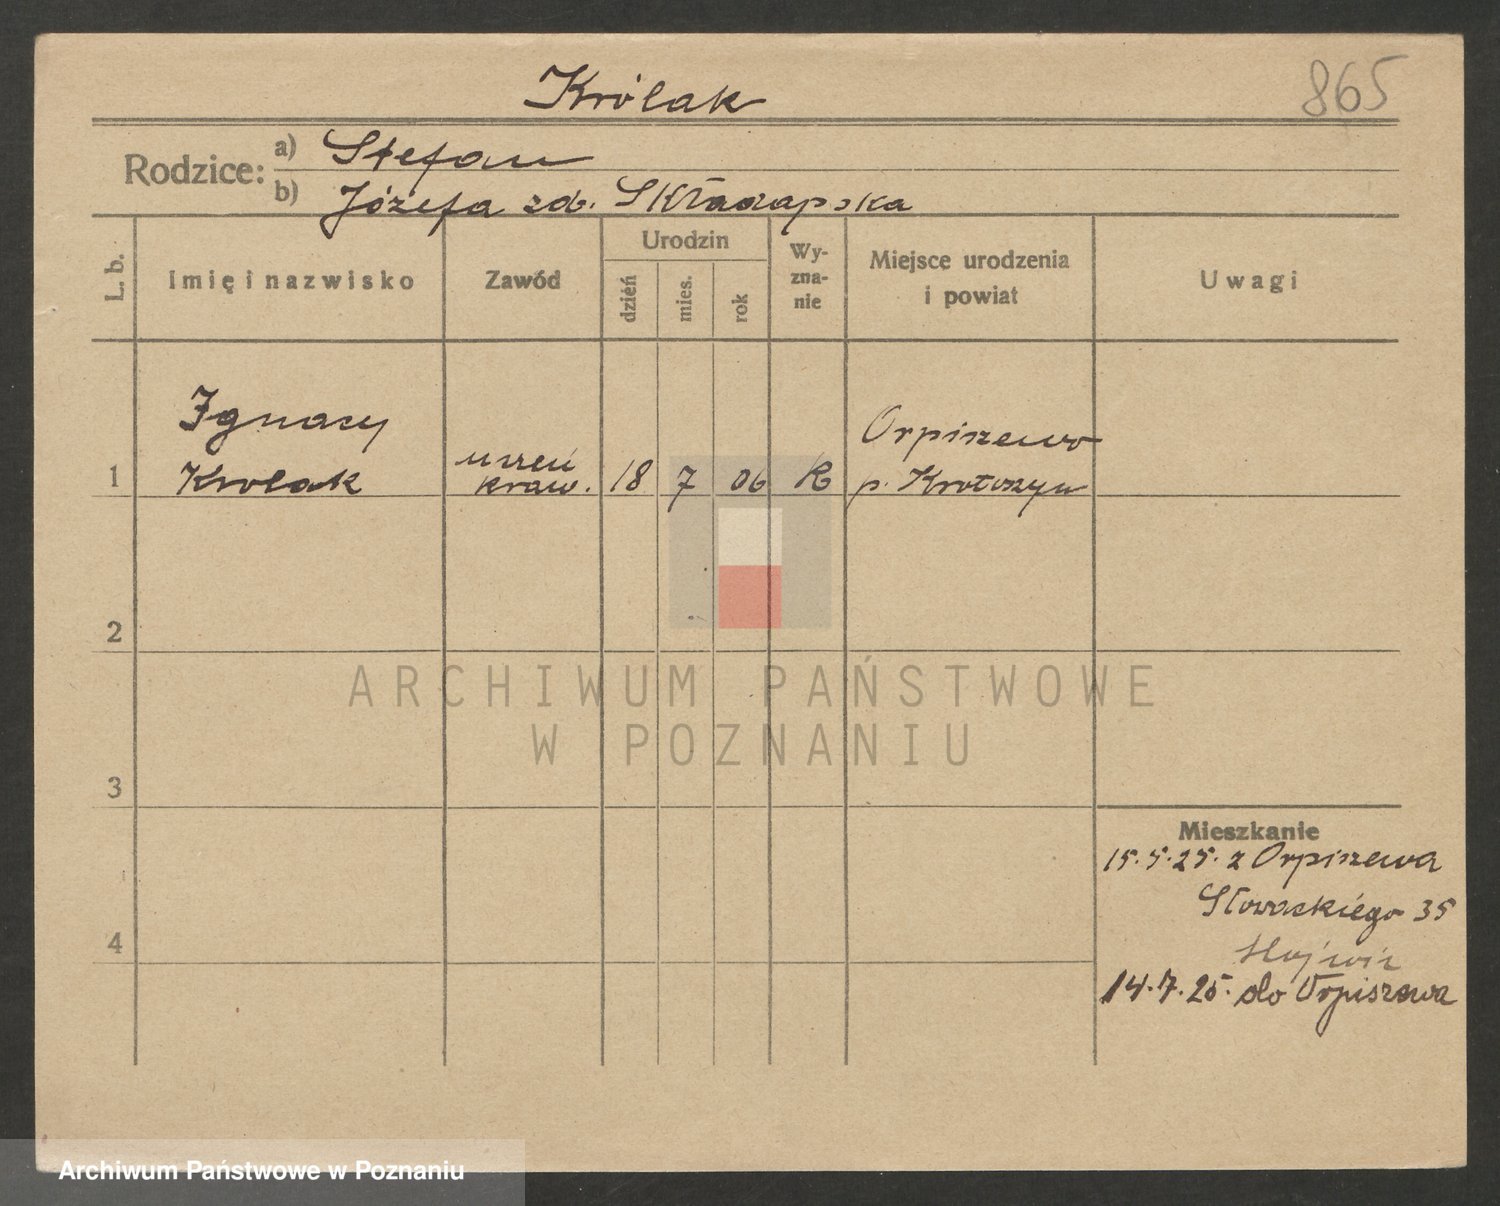 Królak
865
Rodzice:
a) Stefan
b) Józefa zd.
L. b.
Imię i nazwisko
Zawód
Urodzin
dzień
mies.
rok
Wy-
zna-
nie
Miejsce urodzenia
i powiat
Uwagi
1
Ignacy
Krolak
uczeń
kraw.
18
7
06
K
Orpiszewo
p. Krotoszyn
2
3
4
Mieszkanie
15.5.25. z Orpiszewa
Słowackiego 35
14.7.25. do Orpiszewa
ARCHIWUM PAŃSTWOWE
W POZNANIU
Archiwum Państwowe w Poznaniu